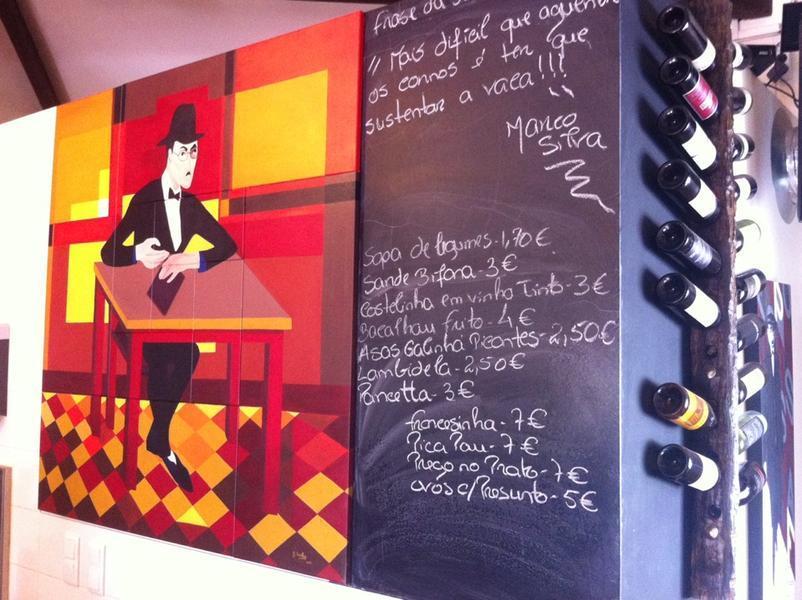 Frase da
"Mais dificil que aguentar
os cornos é ter que
sustentar a vaca!!!
Marco
Silva
Sopa de legumes - 1,70€
Sande Bifana - 3€
Costelinha em vinho Tinto - 3€
Bacalhau frito - 4€
Asas Galinha Picantes - 2,50€
Lambidela - 2,50€
Pancetta - 3€
francesinha - 7€
Pica Pau - 7€
Prego no Prato - 7€
ovos c/ Presunto - 5€